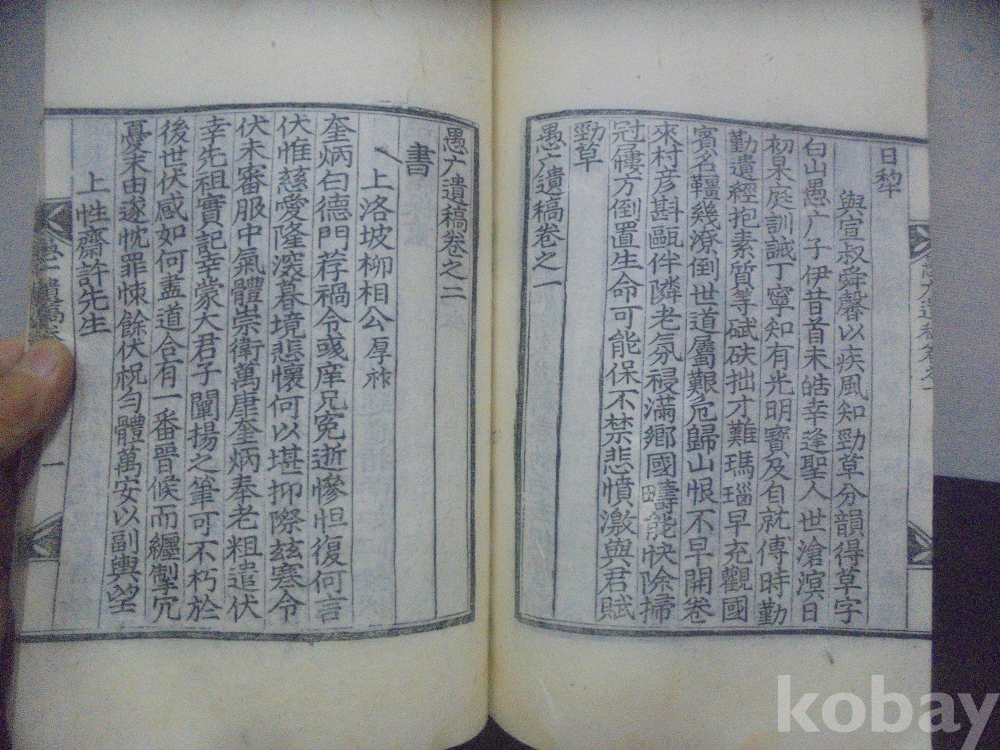 日犂
與宣叔舜馨以疾風知勁草分韻得草字
白山愚广子伊昔首未皓幸逢聖人世滄溟日
初杲庭訓誠丁寧知有光明寶及自就傅時勤
勤遺經抱素質等碔砆拙才難瑪瑙早充觀國
賓名韁幾潦倒世道屬艱危歸山恨不早開卷
來村彦斟甌伴隣老氛祲滿鄉國疇能快除掃
冠屨方倒置生命可能保不禁悲憤激與君賦
勁草
愚广遺稿卷之一
愚广遺稿卷之二
書
上洛坡柳相公厚祚
奎炳白德門荐禍令彧庠兄冤逝慘怛復何言
伏惟慈愛隆深暮境悲懷何以堪抑際玆寒令
伏未審服中氣體崇衛萬康奎炳奉老粗遣伏
幸先祖實記幸蒙大君子闡揚之筆可不朽於
後世伏感如何盍道合有一番晉候而纏掣冗
憂末由遂忱罪悚餘伏祝勻體萬安以副輿望
上性齋許先生
kobay